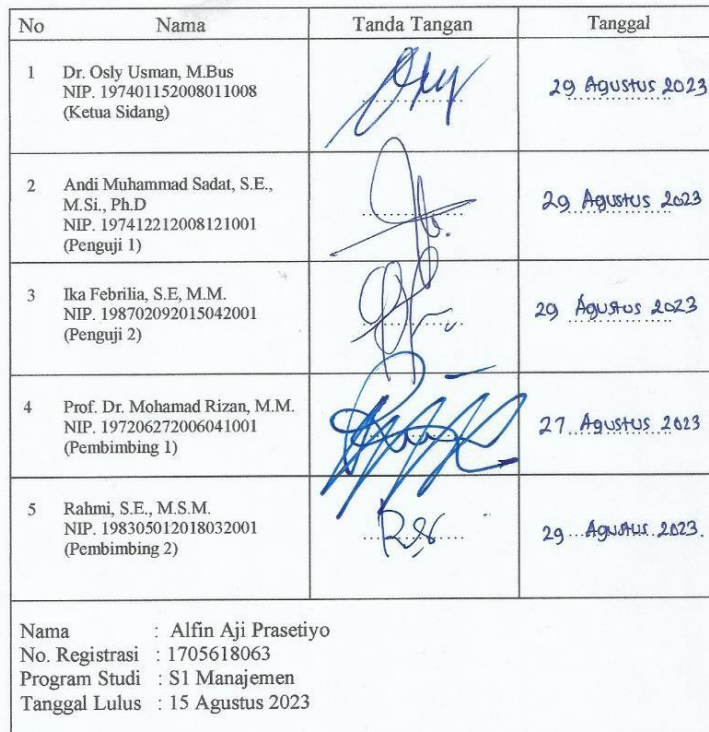 No Nama Tanda Tangan Tanggal
1 Dr. Osly Usman, M.Bus
NIP. 197401152008011008
(Ketua Sidang)
29 Agustus 2023
2 Andi Muhammad Sadat, S.E.,
M.Si., Ph.D
NIP. 197412212008121001
(Penguji 1)
29 Agustus 2023
3 Ika Febrilia, S.E, M.M.
NIP. 198702092015042001
(Penguji 2)
29 Agustus 2023
4 Prof. Dr. Mohamad Rizan, M.M.
NIP. 197206272006041001
(Pembimbing 1)
27 Agustus 2023
5 Rahmi, S.E., M.S.M.
NIP. 198305012018032001
(Pembimbing 2)
29 Agustus 2023.
Nama : Alfin Aji Prasetiyo
No. Registrasi : 1705618063
Program Studi : S1 Manajemen
Tanggal Lulus : 15 Agustus 2023